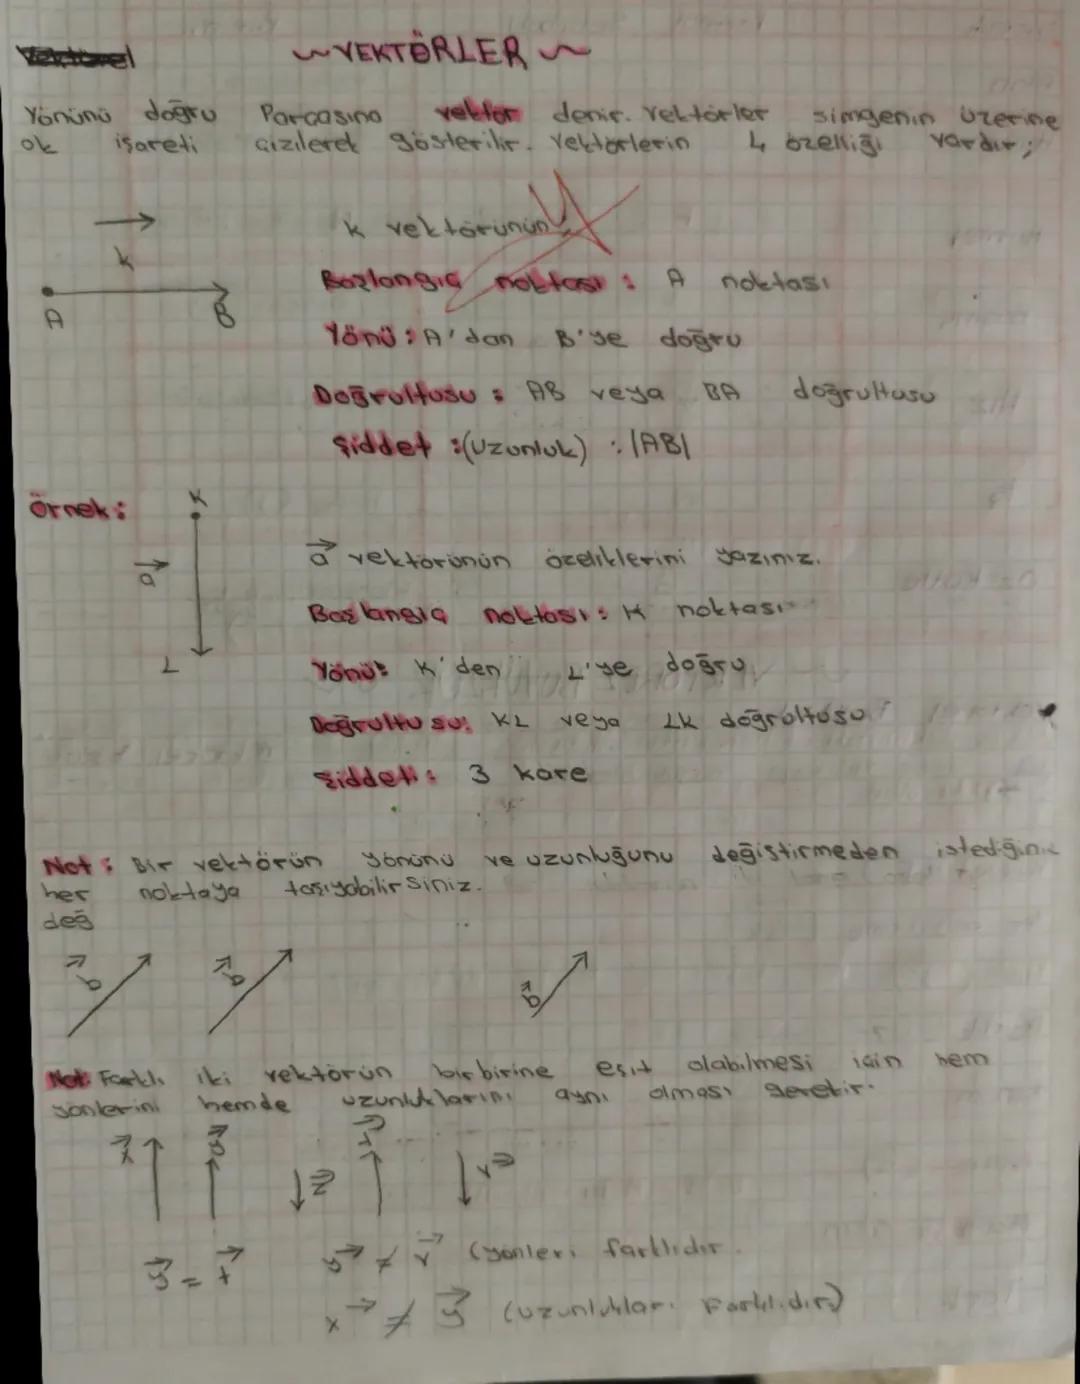 VEKTÖRLER
Yönünü doğru Parçasına vektör denir. Vektörler simgenin üzerine
ok işareti çizilerek gösterilir. Vektörlerin 4 özelliği vardır;
k vektörünün
k
Bazlangıç noktası : A noktası
A B
Yönü : A'dan B'ye doğru
Doğrultusu : AB veya BA doğrultusu
Şiddet :(Uzunluk) : |AB|
Örnek : K
a⃗ a⃗ vektörünün özeliklerini yazınız.
Başlangıç noktası : K noktası
L Yönü: K'den L'ye doğru
Doğrultusu: KL veya LK doğrultusu
Şiddeti : 3 kare
Not : Bir vektörün yönünü ve uzunluğunu değiştirmeden
her noktaya taşıyabilirsiniz.
değ
b⃗ b⃗ b⃗
Not: Farklı iki vektörün birbirine eşit olabilmesi için hem
yönlerini hemde uzunluklarını aynı olması gerekir.
x⃗ y⃗ z⃗ t⃗ v⃗
y⃗ = t⃗ y⃗ ≠ v⃗ (yönleri farklıdır.
x⃗ ≠ y⃗ (uzunlukları Farklıdır)